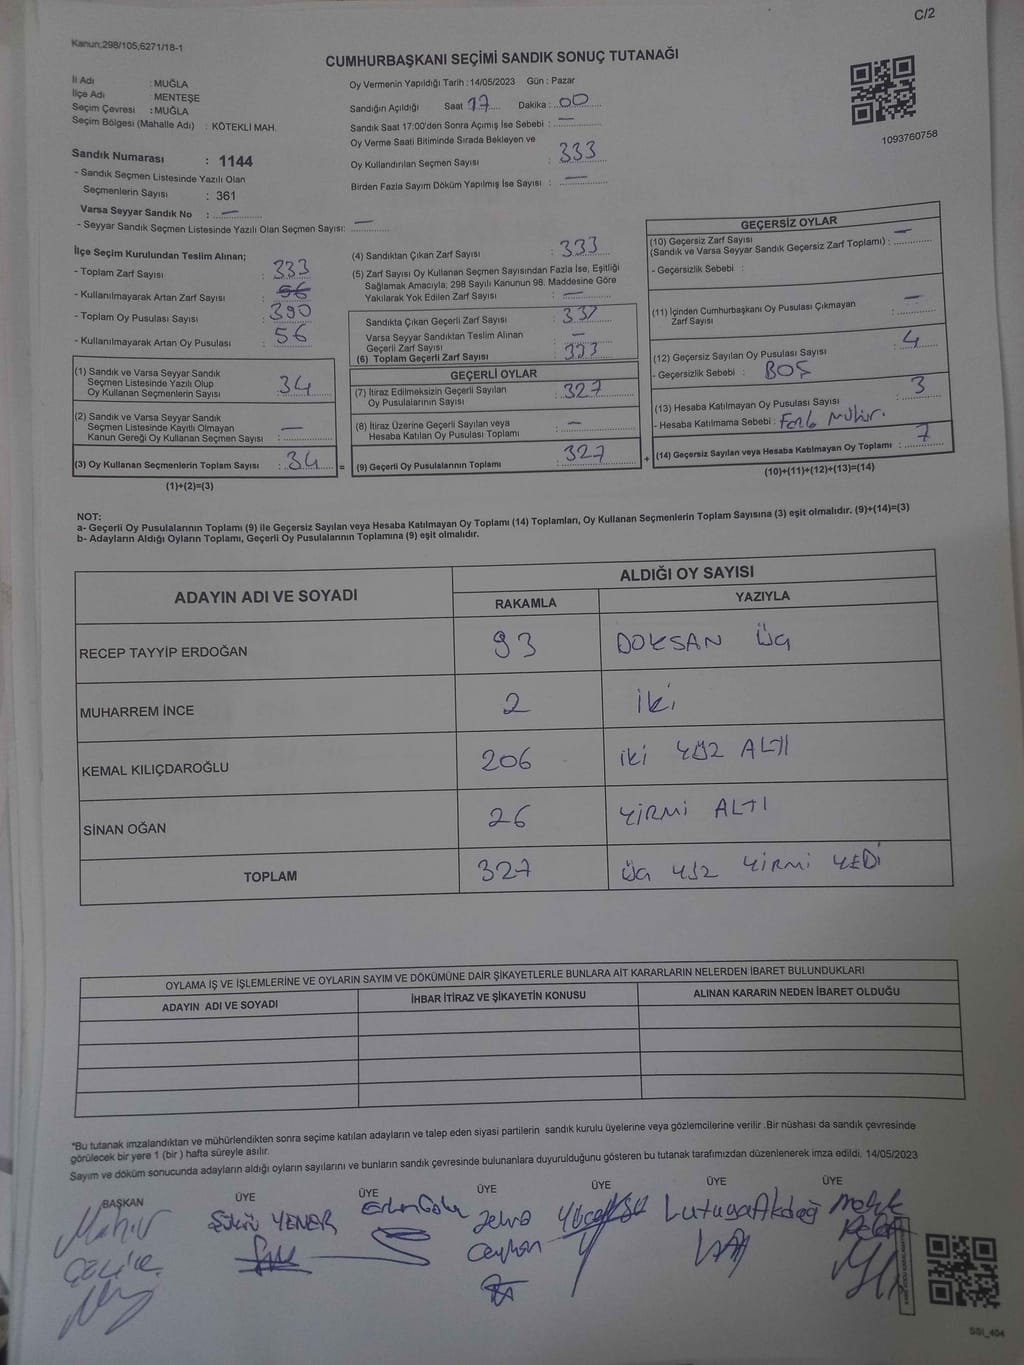 C/2
Kanun;298/105,6271/18-1
CUMHURBAŞKANI SEÇİMİ SANDIK SONUÇ TUTANAĞI
İl Adı : MUĞLA
İlçe Adı : MENTEŞE
Seçim Çevresi : MUĞLA
Seçim Bölgesi (Mahalle Adı) : KÖTEKLİ MAH.
Sandık Numarası : 1144
- Sandık Seçmen Listesinde Yazılı Olan
Seçmenlerin Sayısı : 361
Varsa Seyyar Sandık No : —
- Seyyar Sandık Seçmen Listesinde Yazılı Olan Seçmen Sayısı: —
Oy Vermenin Yapıldığı Tarih : 14/05/2023 Gün : Pazar
Sandığın Açıldığı Saat 17 Dakika : 00
Sandık Saat 17:00'den Sonra Açımış İse Sebebi : —
Oy Verme Saati Bitiminde Sırada Bekleyen ve
Oy Kullandırılan Seçmen Sayısı : 333
Birden Fazla Sayım Döküm Yapılmış İse Sayısı : —
1093760758
İlçe Seçim Kurulundan Teslim Alınan;
- Toplam Zarf Sayısı : 333
- Kullanılmayarak Artan Zarf Sayısı : 56
- Toplam Oy Pusulası Sayısı : 390
- Kullanılmayarak Artan Oy Pusulası : 56
(1) Sandık ve Varsa Seyyar Sandık
Seçmen Listesinde Yazılı Olup
Oy Kullanan Seçmenlerin Sayısı : 34
(2) Sandık ve Varsa Seyyar Sandık
Seçmen Listesinde Kayıtlı Olmayan
Kanun Gereği Oy Kullanan Seçmen Sayısı : —
(3) Oy Kullanan Seçmenlerin Toplam Sayısı : 34 =
(1)+(2)=(3)
(4) Sandıktan Çıkan Zarf Sayısı : 333
(5) Zarf Sayısı Oy Kullanan Seçmen Sayısından Fazla İse, Eşitliği
Sağlamak Amacıyla; 298 Sayılı Kanunun 98. Maddesine Göre
Yakılarak Yok Edilen Zarf Sayısı : —
Sandıkta Çıkan Geçerli Zarf Sayısı :
Varsa Seyyar Sandıktan Teslim Alınan
Geçerli Zarf Sayısı : —
(6) Toplam Geçerli Zarf Sayısı : 333
GEÇERLİ OYLAR
(7) İtiraz Edilmeksizin Geçerli Sayılan
Oy Pusulalarının Sayısı : 327
(8) İtiraz Üzerine Geçerli Sayılan veya
Hesaba Katılan Oy Pusulası Toplamı : —
(9) Geçerli Oy Pusulalarının Toplamı : 327 +
GEÇERSİZ OYLAR
(10) Geçersiz Zarf Sayısı
(Sandık ve Varsa Seyyar Sandık Geçersiz Zarf Toplamı) : —
- Geçersizlik Sebebi :
(11) İçinden Cumhurbaşkanı Oy Pusulası Çıkmayan
Zarf Sayısı : —
(12) Geçersiz Sayılan Oy Pusulası Sayısı : 4
- Geçersizlik Sebebi : BOŞ
(13) Hesaba Katılmayan Oy Pusulası Sayısı : 3
- Hesaba Katılmama Sebebi : Fazla Mühür.
(14) Geçersiz Sayılan veya Hesaba Katılmayan Oy Toplamı : 7
(10)+(11)+(12)+(13)=(14)
NOT:
a- Geçerli Oy Pusulalarının Toplamı (9) ile Geçersiz Sayılan veya Hesaba Katılmayan Oy Toplamı (14) Toplamları, Oy Kullanan Seçmenlerin Toplam Sayısına (3) eşit olmalıdır. (9)+(14)=(3)
b- Adayların Aldığı Oyların Toplamı, Geçerli Oy Pusulalarının Toplamına (9) eşit olmalıdır.
ADAYIN ADI VE SOYADI ALDIĞI OY SAYISI
RAKAMLA YAZIYLA
RECEP TAYYİP ERDOĞAN 93 DOKSAN ÜÇ
MUHARREM İNCE 2 İki
KEMAL KILIÇDAROĞLU 206 iki YÜZ ALTI
SİNAN OĞAN 26 YİRMİ ALTI
TOPLAM 327 ÜÇ YÜZ YİRMİ YEDİ
OYLAMA İŞ VE İŞLEMLERİNE VE OYLARIN SAYIM VE DÖKÜMÜNE DAİR ŞİKAYETLERLE BUNLARA AİT KARARLARIN NELERDEN İBARET BULUNDUKLARI
ADAYIN ADI VE SOYADI İHBAR İTİRAZ VE ŞİKAYETİN KONUSU ALINAN KARARIN NEDEN İBARET OLDUĞU
*Bu tutanak imzalandıktan ve mühürlendikten sonra seçime katılan adayların ve talep eden siyasi partilerin sandık kurulu üyelerine veya gözlemcilerine verilir .Bir nüshası da sandık çevresinde
görülecek bir yere 1 (bir ) hafta süreyle asılır.
Sayım ve döküm sonucunda adayların aldığı oyların sayılarını ve bunların sandık çevresinde bulunanlara duyurulduğunu gösteren bu tutanak tarafımızdan düzenlenerek imza edildi. 14/05/2023
BAŞKAN ÜYE ÜYE ÜYE ÜYE ÜYE ÜYE
Şükrü YENER Zehra Lutuga Akdağ
Ceyhan
SSI_404